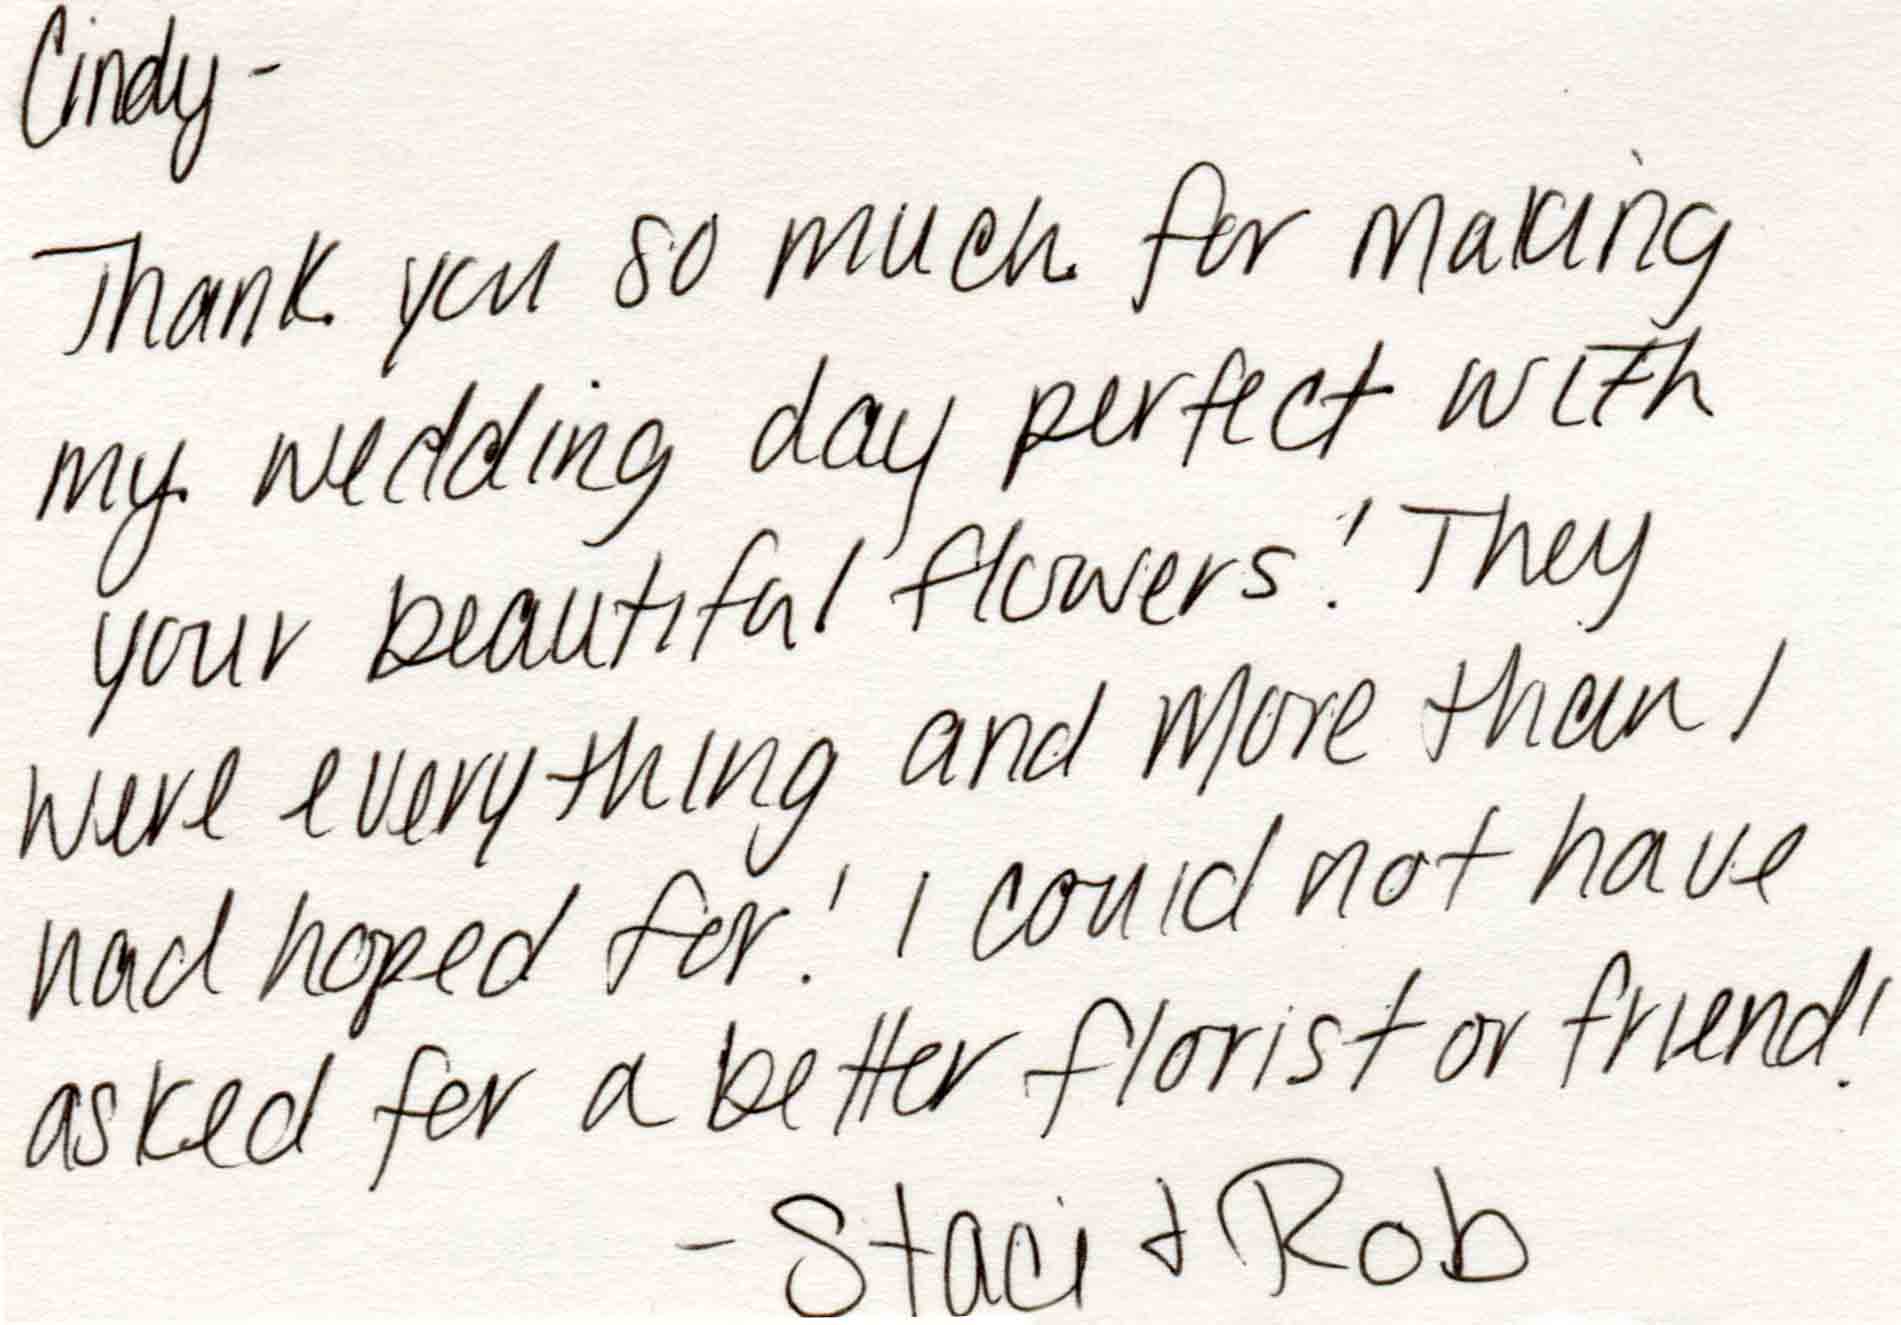 Cindy -
Thank you so much for making
my wedding day perfect with
your beautiful flowers! They
were everything and more than I
had hoped for! I could not have
asked for a better florist or friend!
- Staci & Rob